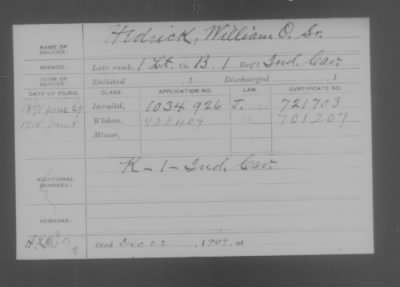 NAME OF SOLDIER: Hedrick, William O. Sr.
SERVICE: Late rank, 1 Lt. Co. B, 1 Reg't Ind. Cav.
TERM OF SERVICE: Enlisted , 1 Discharged , 1
DATE OF FILING. CLASS. APPLICATION NO. LAW. CERTIFICATE NO.
June 29 Invalid, 1034 926 J. 721703
Widow, 701207
Minor,
K-1-Ind. Cav.
ADDITIONAL SERVICES:
REMARKS:
Died Dec 12, 1907, at